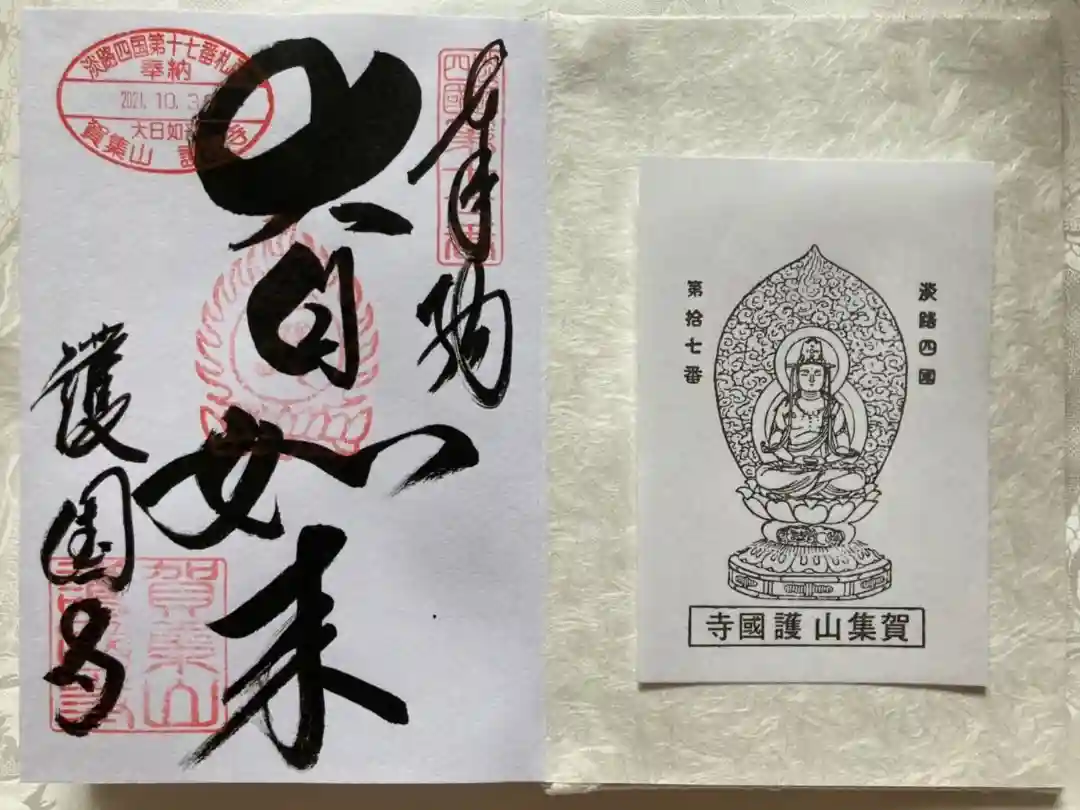 淡路四国第十七番札
奉納
2021.10.3
大日如
賀集山
奉納
大日如来
護国寺
賀集山
淡路四國
第拾七番
賀集山 護國寺